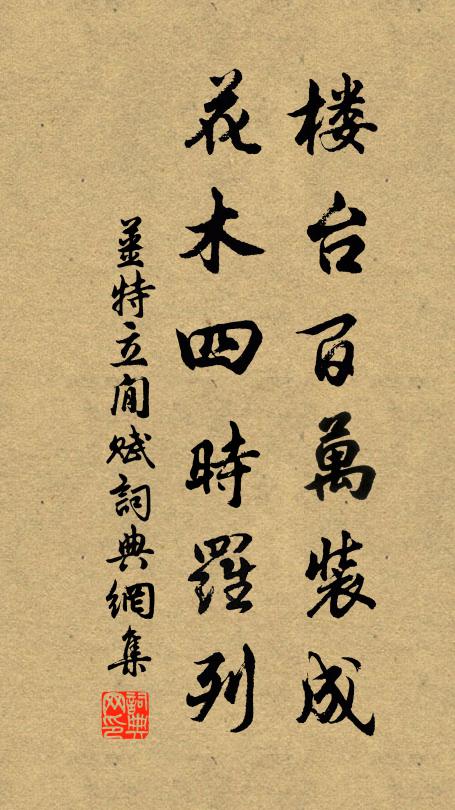 楼台百萬裝成
花木四時羅列
薑特立閒賦詞典網集
詞典
网印